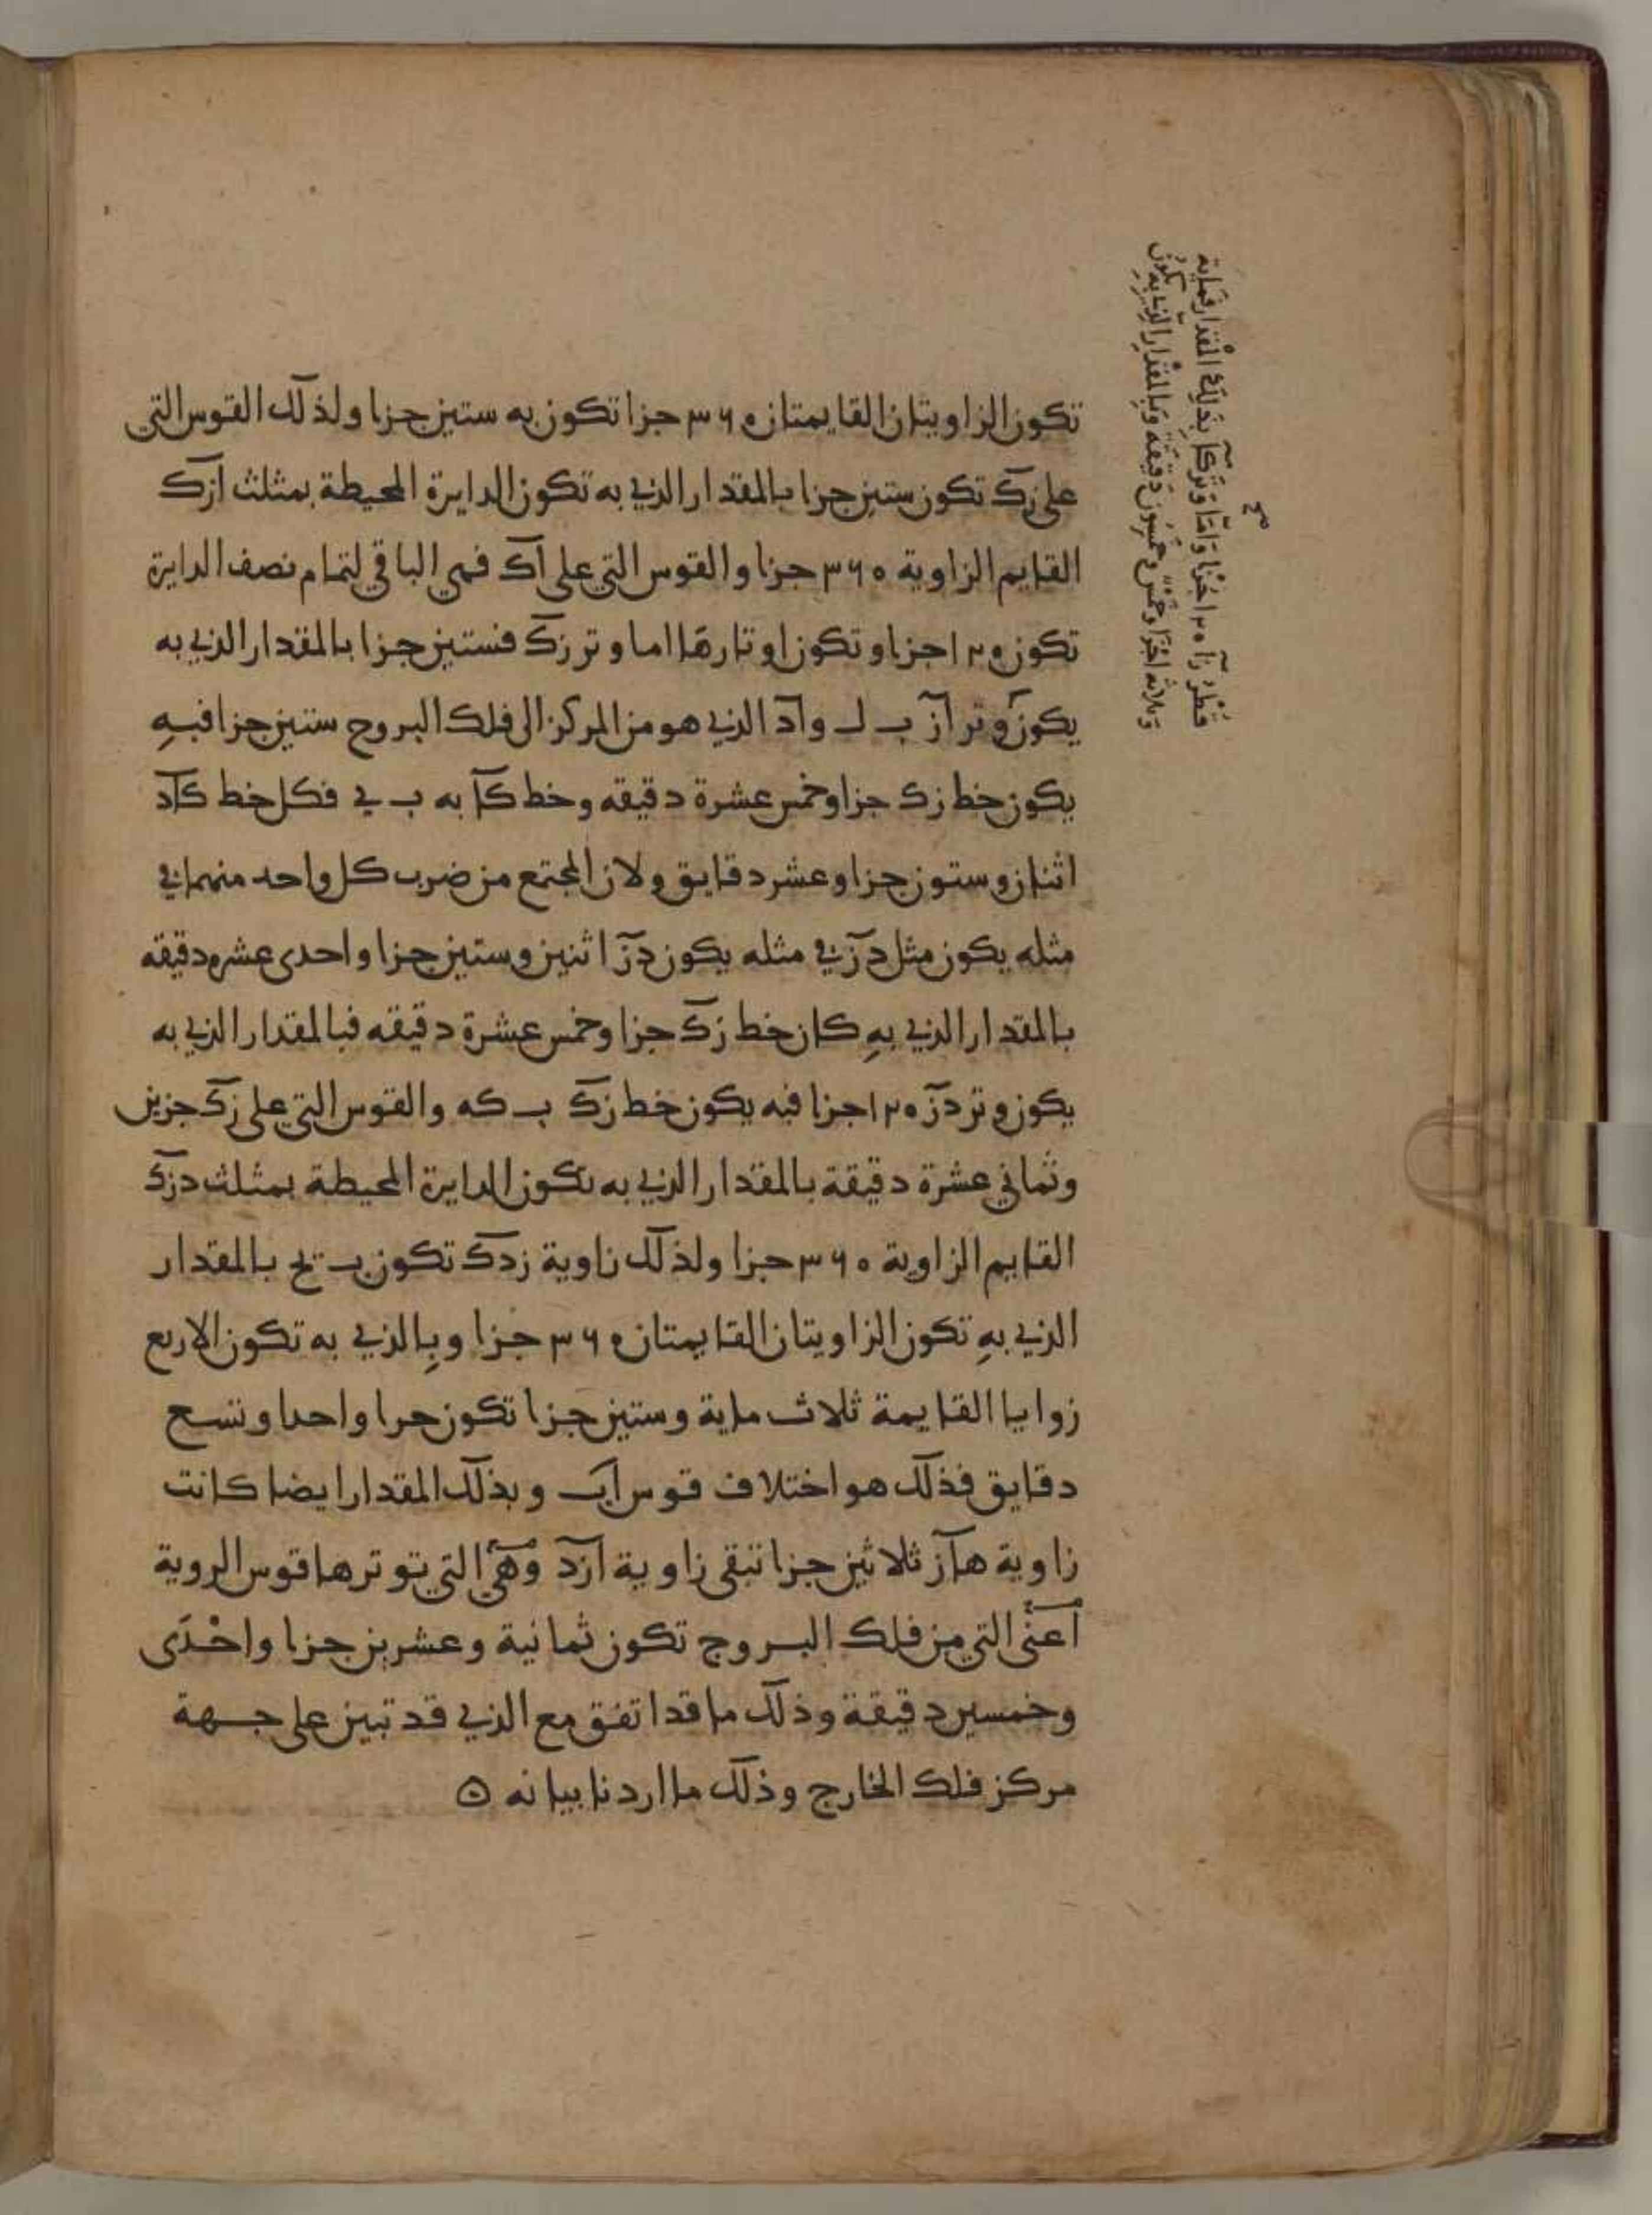 تكون الزاويتان القايمتان ٣٦٠ جزا تكون به ستين جزا ولذلك القوس التي
على زك تكون ستين جزا بالمقدار الذي به تكون الدايرة المحيطة بمثلث ازك
القايم الزاوية ٣٦٠ جزا والقوس التي على اك فهي الباقي لتمام نصف الدايرة
تكون ١٢٠ جزا وتكون اوتارها اما وتر زك فستين جزا بالمقدار الذي به
يكون وتر از ب ل واد الذي هو من المركز الى فلك البروج ستين جزا فبه
يكون خط زك جزا وخمس عشرة دقيقه وخط كا به ب ي فكل خط كاد
اثنان وستون جزا وعشر دقايق ولان المجتمع من ضرب كل واحد منهما في
مثله يكون مثل دز في مثله يكون دز اثنين وستين جزا واحدى عشره دقيقه
بالمقدار الذي به كان خط زك جزا وخمس عشرة دقيقه فبالمقدار الذي به
يكون وتر دز ١٢٠ جزا فبه يكون خط زك ب كه والقوس التي على زك جزين
وثماني عشرة دقيقة بالمقدار الذي به تكون الدايرة المحيطة بمثلث دزك
القايم الزاوية ٣٦٠ جزا ولذلك زاوية زدك تكون ب يح بالمقدار
الذي به تكون الزاويتان القايمتان ٣٦٠ جزا وبالذي به تكون الاربع
زوايا القايمة ثلاث ماية وستين جزا تكون جزا واحدا وتسع
دقايق فذلك هو اختلاف قوس اب وبذلك المقدار ايضا كانت
زاوية هاز ثلاثين جزا تبقى زاوية ازد وهي التي توترها قوس الروية
اعنى التي من فلك البروج تكون ثمانية وعشرين جزا واحدى
وخمسين دقيقة وذلك ما قد اتفق مع الذي قد تبين على جهة
مركز فلك الخارج وذلك ما اردنا بيانه ه
قطر زا ١٢٠ جزا واما وتر كا بذلك المقدار فماية
وثلاثة اجزا وخمس وخمسون دقيقة وبالمقدار الذي به يكون
صح